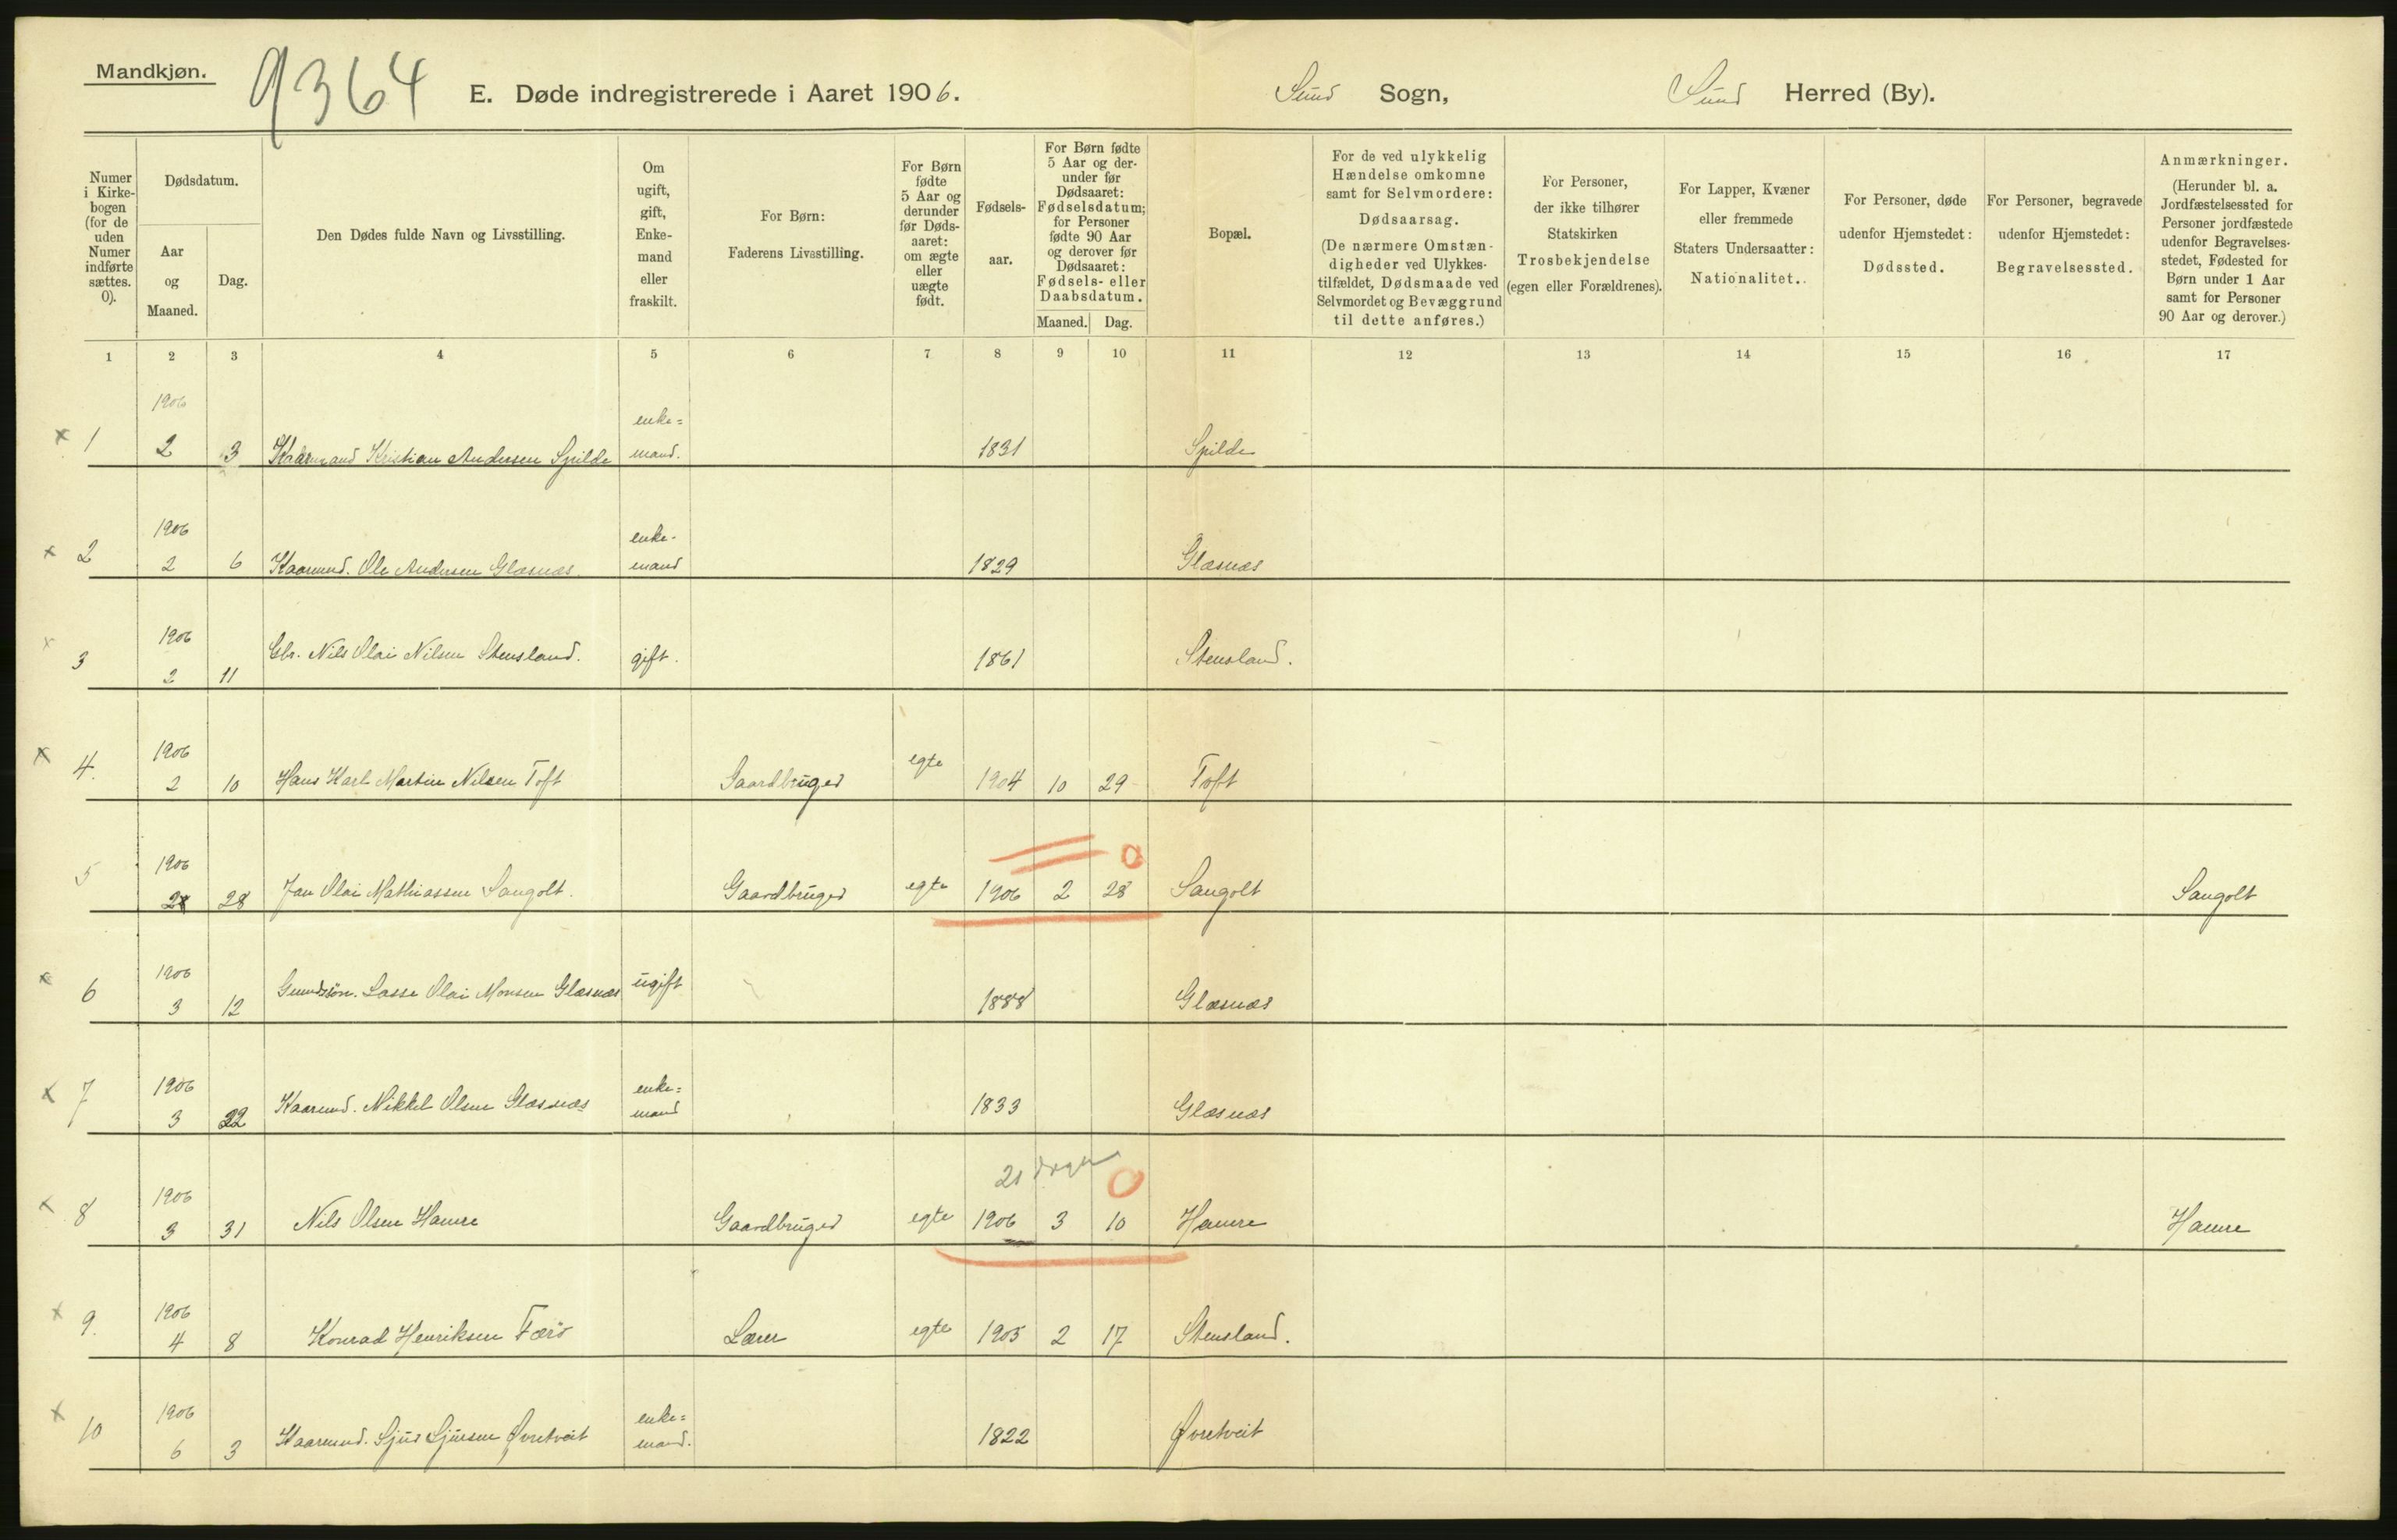 Mandkjøn.
9364
E. Døde indregistrerede i Aaret 1906.
Sund Sogn,
Sund Herred (By).
Numer i Kirkebogen (for de uden Numer indførte sættes. 0).
Dødsdatum.
Aar og Maaned.
Dag.
Den Dødes fulde Navn og Livsstilling.
Om ugift, gift, Enkemand eller fraskilt.
For Børn: Faderens Livsstilling.
For Børn fødte 5 Aar og derunder før Dødsaaret: om ægte eller uægte født.
Fødselsaar.
For Børn fødte 5 Aar og derunder før Dødsaaret: Fødselsdatum; for Personer fødte 90 Aar og derover før Dødsaaret: Fødsels- eller Daabsdatum.
Maaned. Dag.
Bopæl.
For de ved ulykkelig Hændelse omkomne samt for Selvmordere: Dødsaarsag. (De nærmere Omstændigheder ved Ulykkestilfældet, Dødsmaade ved Selvmordet og Bevæggrund til dette anføres.)
For Personer, der ikke tilhører Statskirken Trosbekjendelse (egen eller Forældrenes).
For Lapper, Kvæner eller fremmede Staters Undersaatter: Nationalitet.
For Personer, døde udenfor Hjemstedet: Dødssted.
For Personer, begravede udenfor Hjemstedet: Begravelsessted.
Anmærkninger. (Herunder bl. a. Jordfæstelsessted for Personer jordfæstede udenfor Begravelsesstedet, Fødested for Børn under 1 Aar samt for Personer 90 Aar og derover.)
1 2 3 4 5 6 7 8 9 10 11 12 13 14 15 16 17
x 1 1906 2 3 Kaarmand Kristian Andersen Spilde enke=mand. 1831 Spilde
x 2 1906 2 6 Kaarmd. Ole Andersen Glæsnæs. enke-mand 1829 Glæsnæs
x 3 1906 2 11 Gbr. Nils Olai Nilsen Stensland. gift. 1861 Stensland.
x 4. 1906 2 10 Hans Karl Martin Nilsen Toft Gaardbruger egte 1904 10 29 Toft
5 1906 2 28 Jan Olai Mathiassen Sangolt. Gaardbruger egte 1906 2 28 0 Sangolt Sangolt
x 6 1906 3 12 Gmdsön. Lasse Olai Monsen Glæsnæs ugift 1888 Glæsnæs
x 7 1906 3 22 Kaarmd. Mikkel Olsen Glæsnæs enke=mand 1833 Glæsnæs
x 8 1906 3 31 Nils Olsen Hamre Gaardbruger egte 21 dage 1906 3 10 0 Hamre Hamre
x 9. 1906 4 8 Konrad Henriksen Færö Lærer egte 1905 2 17 Stensland.
x 10 1906 6 3 Kaarmd. Sjur Sjursen Øvretveit enke=mand. 1822 Øvretveit